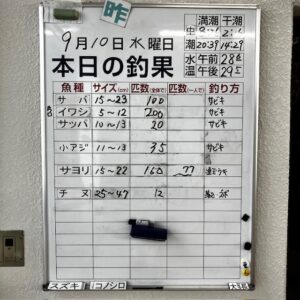 昨
満潮 干潮
潮 20:39 14:29
9月10日水曜日
水温 午前 28
午後 29.5
本日の釣果
魚種 サイズ(cm) 匹数(全体で) 匹数(一人で) 釣り方
サバ 15~23 100 サビキ
イワシ 5~12 200 サビキ
サッパ 10~13 20 サビキ
小アジ 11~13 35 サビキ
サヨリ 15~22 160 77
チヌ 25~47 12
スズキ コノシロ